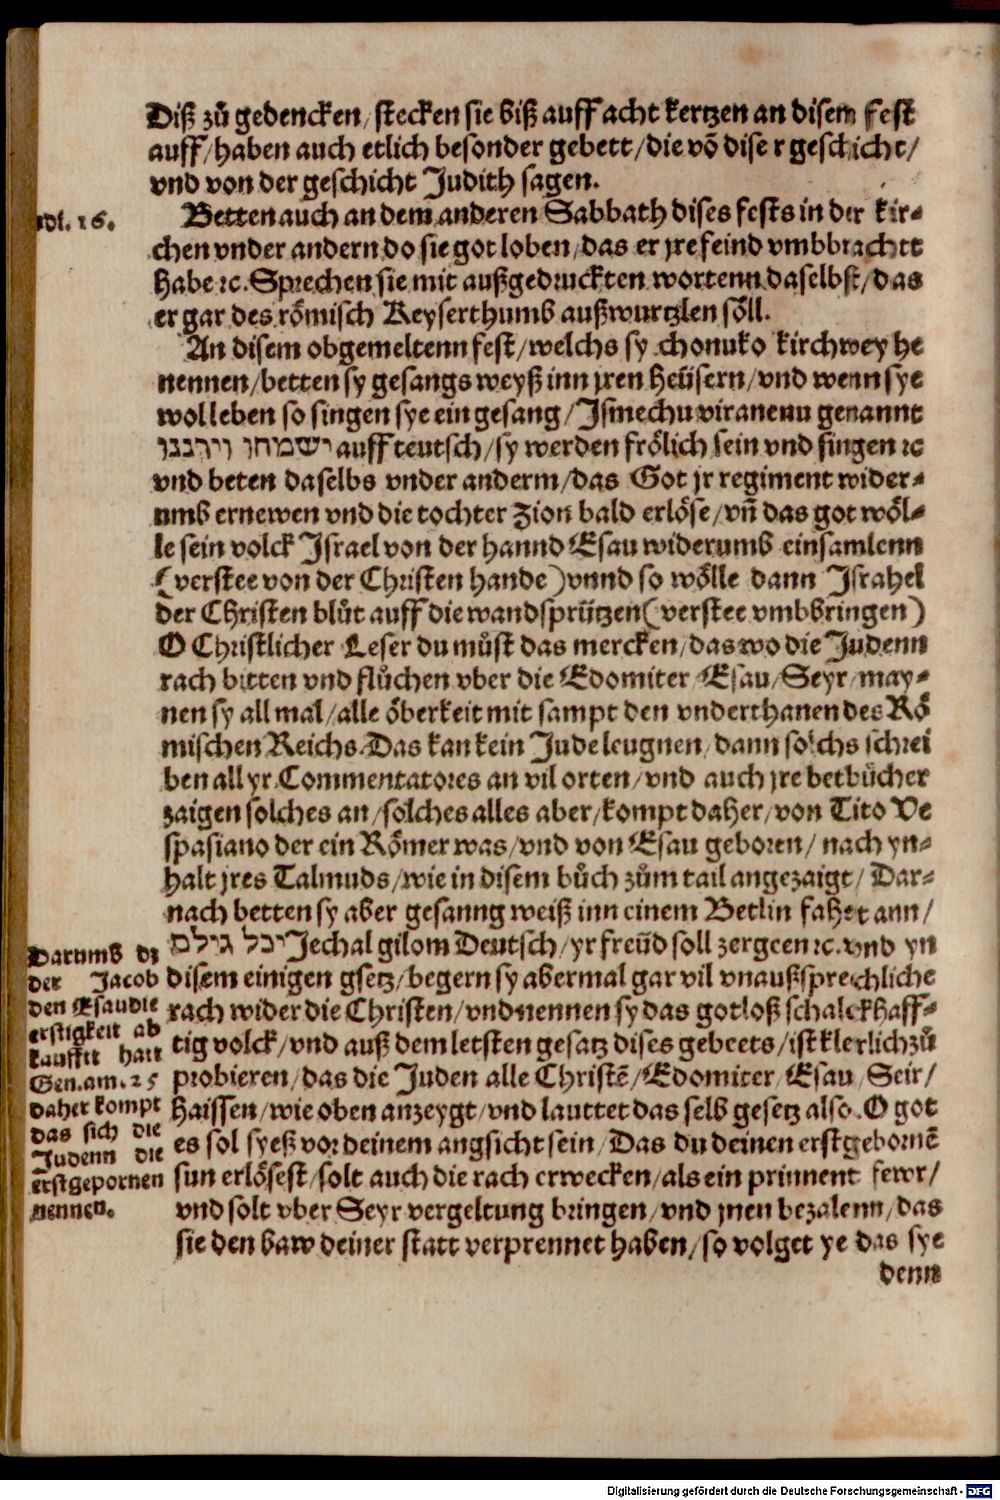 Diß zů gedencken/ stecken sie biß auff acht kertzen an disem fest
auff/ haben auch etlich besonder gebett/ die võ diser geschicht/
vnd von der geschicht Judith sagen.
fol. 16.
Betten auch an dem anderen Sabbath dises fests in der kir-
chen vnder andern do sie got loben/ das er jre feind vmbbrachtt
habe ꝛc. Sprechen sie mit außgedruckten wortenn daselbst/ das
er gar des römisch Keyserthumb außwurtzlen söll.
An disem obgemeltenn fest/ welchs sy chonuko kirchwey he
nennen/ betten sy gesangs weyß inn jren heüsern/ vnd wenn sye
wol leben so singen sye ein gesang/ Jsmechu viranenu genannt
ישמחו וירננו auff teutsch/ sy werden frölich sein vnd singen ꝛc
vnd beten daselbs vnder anderm/ das Got jr regiment wider-
umb ernewen vnd die tochter Zion bald erlöse/ vñ das got wöl-
le sein volck Jsrael von der hannd Esau widerumb einsamlenn
(verstee von der Christen hande) vnnd so wölle dann Jsrahel
der Christen blůt auff die wand sprützen (verstee vmbbringen)
O Christlicher Leser du můst das mercken/ das wo die Judenn
rach bitten vnd flůchen vber die Edomiter/ Esau/ Seyr/ may-
nen sy all mal/ alle öberkeit mit sampt den vnderthanen des Rö
mischen Reichs. Das kan kein Jude leugnen/ dann solchs schrei
ben all yr Commentatores an vil orten/ vnd auch jre betbücher
zaigen solches an/ solches alles aber/ kompt daher/ von Tito Ve
spasiano der ein Römer was/ vnd von Esau geboren/ nach yn-
halt jres Talmuds/ wie in disem bůch zům tail angezaigt/ Dar-
nach betten sy aber gesanng weiß inn einem Betlin fahet ann/
יכל גילם Jechal gilom Deutsch/ yr freüd soll zergeen ꝛc. vnd yn
disem einigen gsetz/ begern sy abermal gar vil vnaußsprechliche
rach wider die Christen/ vnd nennen sy das gotloß schalckhaff-
tig volck/ vnd auß dem letsten gesatz dises gebeets/ ist klerlich zů
probieren/ das die Juden alle Christẽ/ Edomiter/ Esau/ Seir/
haissen/ wie oben anzeygt/ vnd lauttet das selb gesetz also. O got
es sol syeß vor deinem angsicht sein/ Das du deinen erstgebornẽ
sun erlösest/ solt auch die rach erwecken/ als ein prinnent fewr/
vnd solt vber Seyr vergeltung bringen/ vnd jnen bezalenn/ das
sie den baw deiner statt verprennet haben/ so volget ye das sye
denn
Darumb dz
der Jacob
den Esau die
erstigkeit ab
kaufft hatt
Gen. am. 25
daher kompt
das sich die
Judenn die
erstgepornen
nennen.
Digitalisierung gefördert durch die Deutsche Forschungsgemeinschaft - DFG